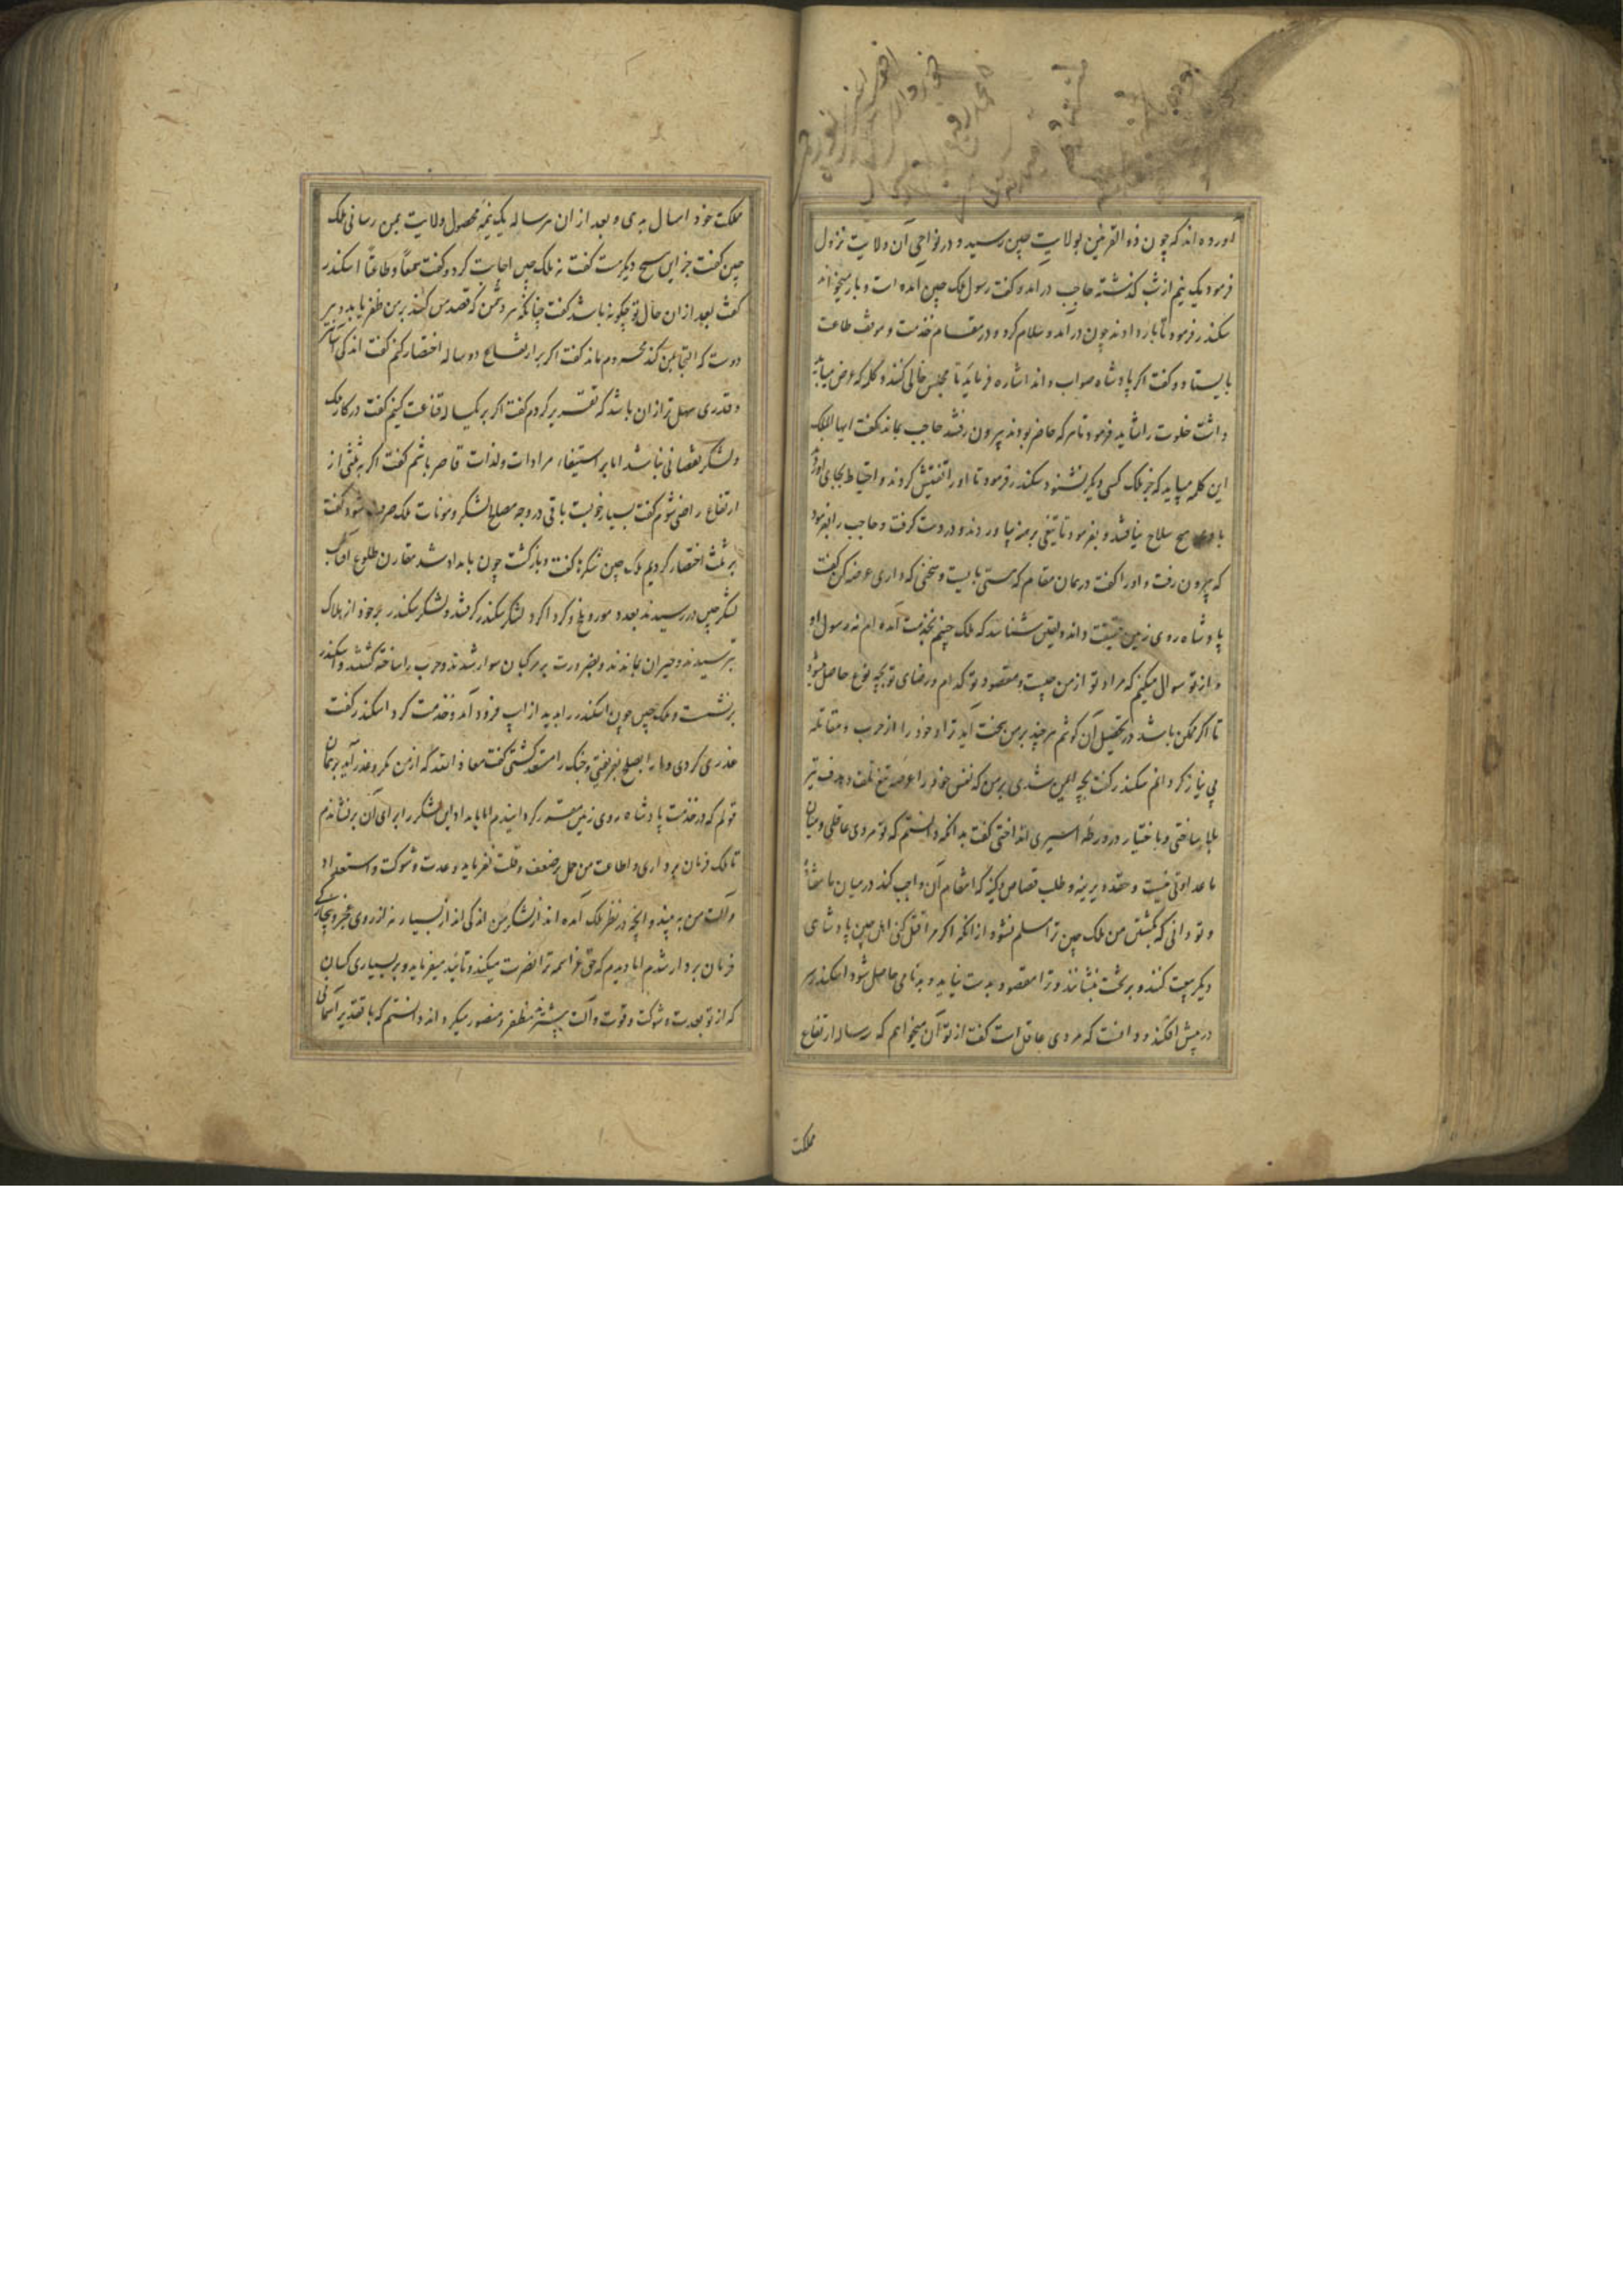 آورده اند که چون ذوالقرنین بولایت چین رسید و در نواحی آن ولایت نزول
فرمود یک نیم از شب کذشته حاجب درآمد و کفت رسول ملک چین آمده است و بار میخواهد
سکندر فرمود تا بار دادند چون درآمد و سلام کرد و در مقام خدمت و موقف طاعت
بایستاد و کفت اکر پادشاه صواب داند اشاره فرماید تا مجلس خالی کنند و کلمه که عرض میباید
داشت خلوت را شاید فرمود تا هر که حاضر بودند بیرون رفتند حاجب بماند کفت ایها الملک
این کلمه میباید که جز ملک کسی دیکر نشنود سکندر فرمود تا او را تفتیش کردند و احتیاط بجای آورد
با وی هیچ سلاح نیافتند و بفرمود تا تیغی برهنه بیاوردند و در دست کرفت و حاجب را بفرمود
که بیرون رفت و او را کفت در همان مقام که هستی بایست و سخنی که داری عرضه کن کفت
پادشاه روی زمین حقیقت داند و یقین شناسد که ملک چینم بخدمت آمده ام نه رسول او
و از تو سوال میکنم که مراد تو از من چیست و مقصود تو کدام و رضای تو بچه نوع حاصل میشود
تا اکر ممکن باشد در تحصیل آن کوشم هر چند بر من سخت آید ترا و خود را از حرب و مقاتله
بی نیاز کردانم سکندر کفت بچه ایمن شدی بر من که نفس خود را عرضه تیغ تلف و هدف تیر
بلا ساختی و باختیار در ورطه اسیری انداختی کفت بدانکه دانستم که تو مردی عاقلی و میان
ما عداوتی نیست و حقد دیرینه و طلب قصاص و کینه که انتقام آن واجب کند در میان ما نه
و تو دانی که بکشتن من ملک چین ترا مسلم نشود از آنکه اکر مرا قتل کنی اهل چین پادشاهی
دیکر بیعت کنند و بر تخت بنشانند و ترا مقصود بدست نیاید و بدنامی حاصل شود اسکندر سر
در پیش افکند و دانست که مردی عاقل است کفت از تو آن میخواهم که سه ساله ارتفاع
مملکت
مملکت خود امسال بدهی و بعد از آن هر ساله یک نیمه محصول ولایت بمن رسانی ملک
چین کفت جز این هیچ دیکر هست کفت نه ملک چین اجابت کرد و کفت سمعاً و طاعتاً اسکندر
کفت بعد از آن حال تو چکونه باشد کفت چنانکه هر دشمن که قصد من کند بر من ظفر یابد و هر
دوست که التجا بمن کند محروم ماند کفت اکر بر ارتفاع دو ساله اختصار کنم کفت اندکی آسان
و قدری سهل تر از آن باشد که تقریر کردم کفت اکر بر یکساله قناعت کنیم کفت در کار ملک
و لشکر نقصانی نباشد اما بر استیفاء مرادات و لذات قاصر باشم کفت اکر به ثلثی از
ارتفاع راضی شوم کفت بسیار خوبست باقی در وجه مصالح لشکر و مونات ملک صرف شود کفت
بر ثلث اختصار کردیم ملک چین شکرها کفت و بازکشت چون بامداد شد مقارن طلوع آفتاب
لشکر چین در رسیدند بعدد مور و ملخ و کرد اکرد لشکر سکندر کرفتند و لشکر سکندر بر خود از هلاک
بترسیدند و حیران بماندند و بضرورت بر مرکبان سوار شدند و حرب را ساخته کشتند و اسکندر
برنشست و ملک چین چون اسکندر را بدید از اسپ فرود آمد و خدمت کرد اسکندر کفت
غدری کردی و ما را بصلح بفریفتی و جنک را مستعد کشتی کفت معاذ الله که از من مکر و غدر آید بر همان
قولم که در خدمت پادشاه روی زمین مقرر کردانیدم اما بامداد این لشکر را برای آن برنشاندم
تا ملک فرمان برداری و اطاعت من حمل بر ضعف و قلت نفرماید و عدت و شوکت و استعداد
و آلت من به بیند و آنچه در نظر ملک آمده اند از لشکر من اندکی اند از بسیار نه از روی عجز و بیچارکی
فرمان بردار شدم اما دیدم که حق عز اسمه ترا نصرت میکند و تایید میفرماید و بر بسیاری کسان
که از تو بعدت و شوکت و قوت و آلت بیشترند مظفر و منصور میکرداند دانستم که با تقدیر آسمانی